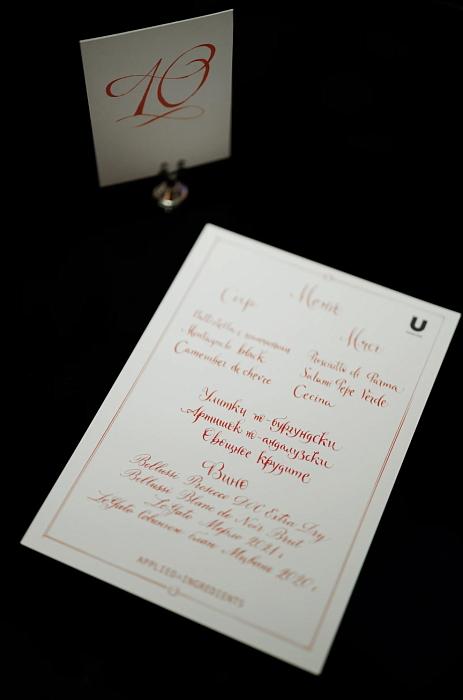 10
U
Меню
Сыр
Мясо
Montagnolo black
Camembert de chevre
Prosciutto di Parma
Salami Pepe Verde
Cecina
Улитки по-бургундски
Артишок по-андалузски
Овощные крудите
Вино
Bellussi Prosecco DOC Extra Dry
Bellussi Blanc de Noir Brut
Le Gato Мерло 2021 г
Le Gato Совиньон блан 2020 г
APPLIED+INGREDIENTS